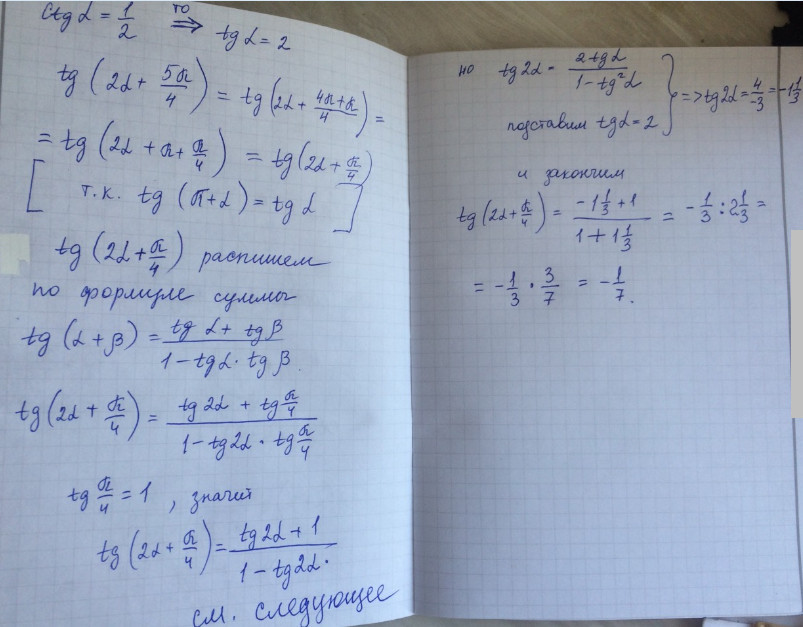 ctg α = 1/2 то ⇒ tg α = 2
tg (2α + 5π/4) = tg (2α + 4π+π/4) =
= tg (2α + π + π/4) = tg (2α + π/4)
[ т.к. tg (π+α) = tg α ]
tg (2α + π/4) распишем
по формуле суммы
tg (α + β) = tg α + tg β / 1 - tg α · tg β
tg (2α + π/4) = tg 2α + tg π/4 / 1 - tg 2α · tg π/4
tg π/4 = 1, значит
tg (2α + π/4) = tg 2α + 1 / 1 - tg 2α.
см. следующее
но tg 2α = 2 tg α / 1 - tg² α } => tg 2α = 4/-3 = -1 1/3
подставим tg α = 2
и закончим
tg (2α + π/4) = -1 1/3 + 1 / 1 + 1 1/3 = -1/3 : 2 1/3 =
= -1/3 · 3/7 = -1/7.